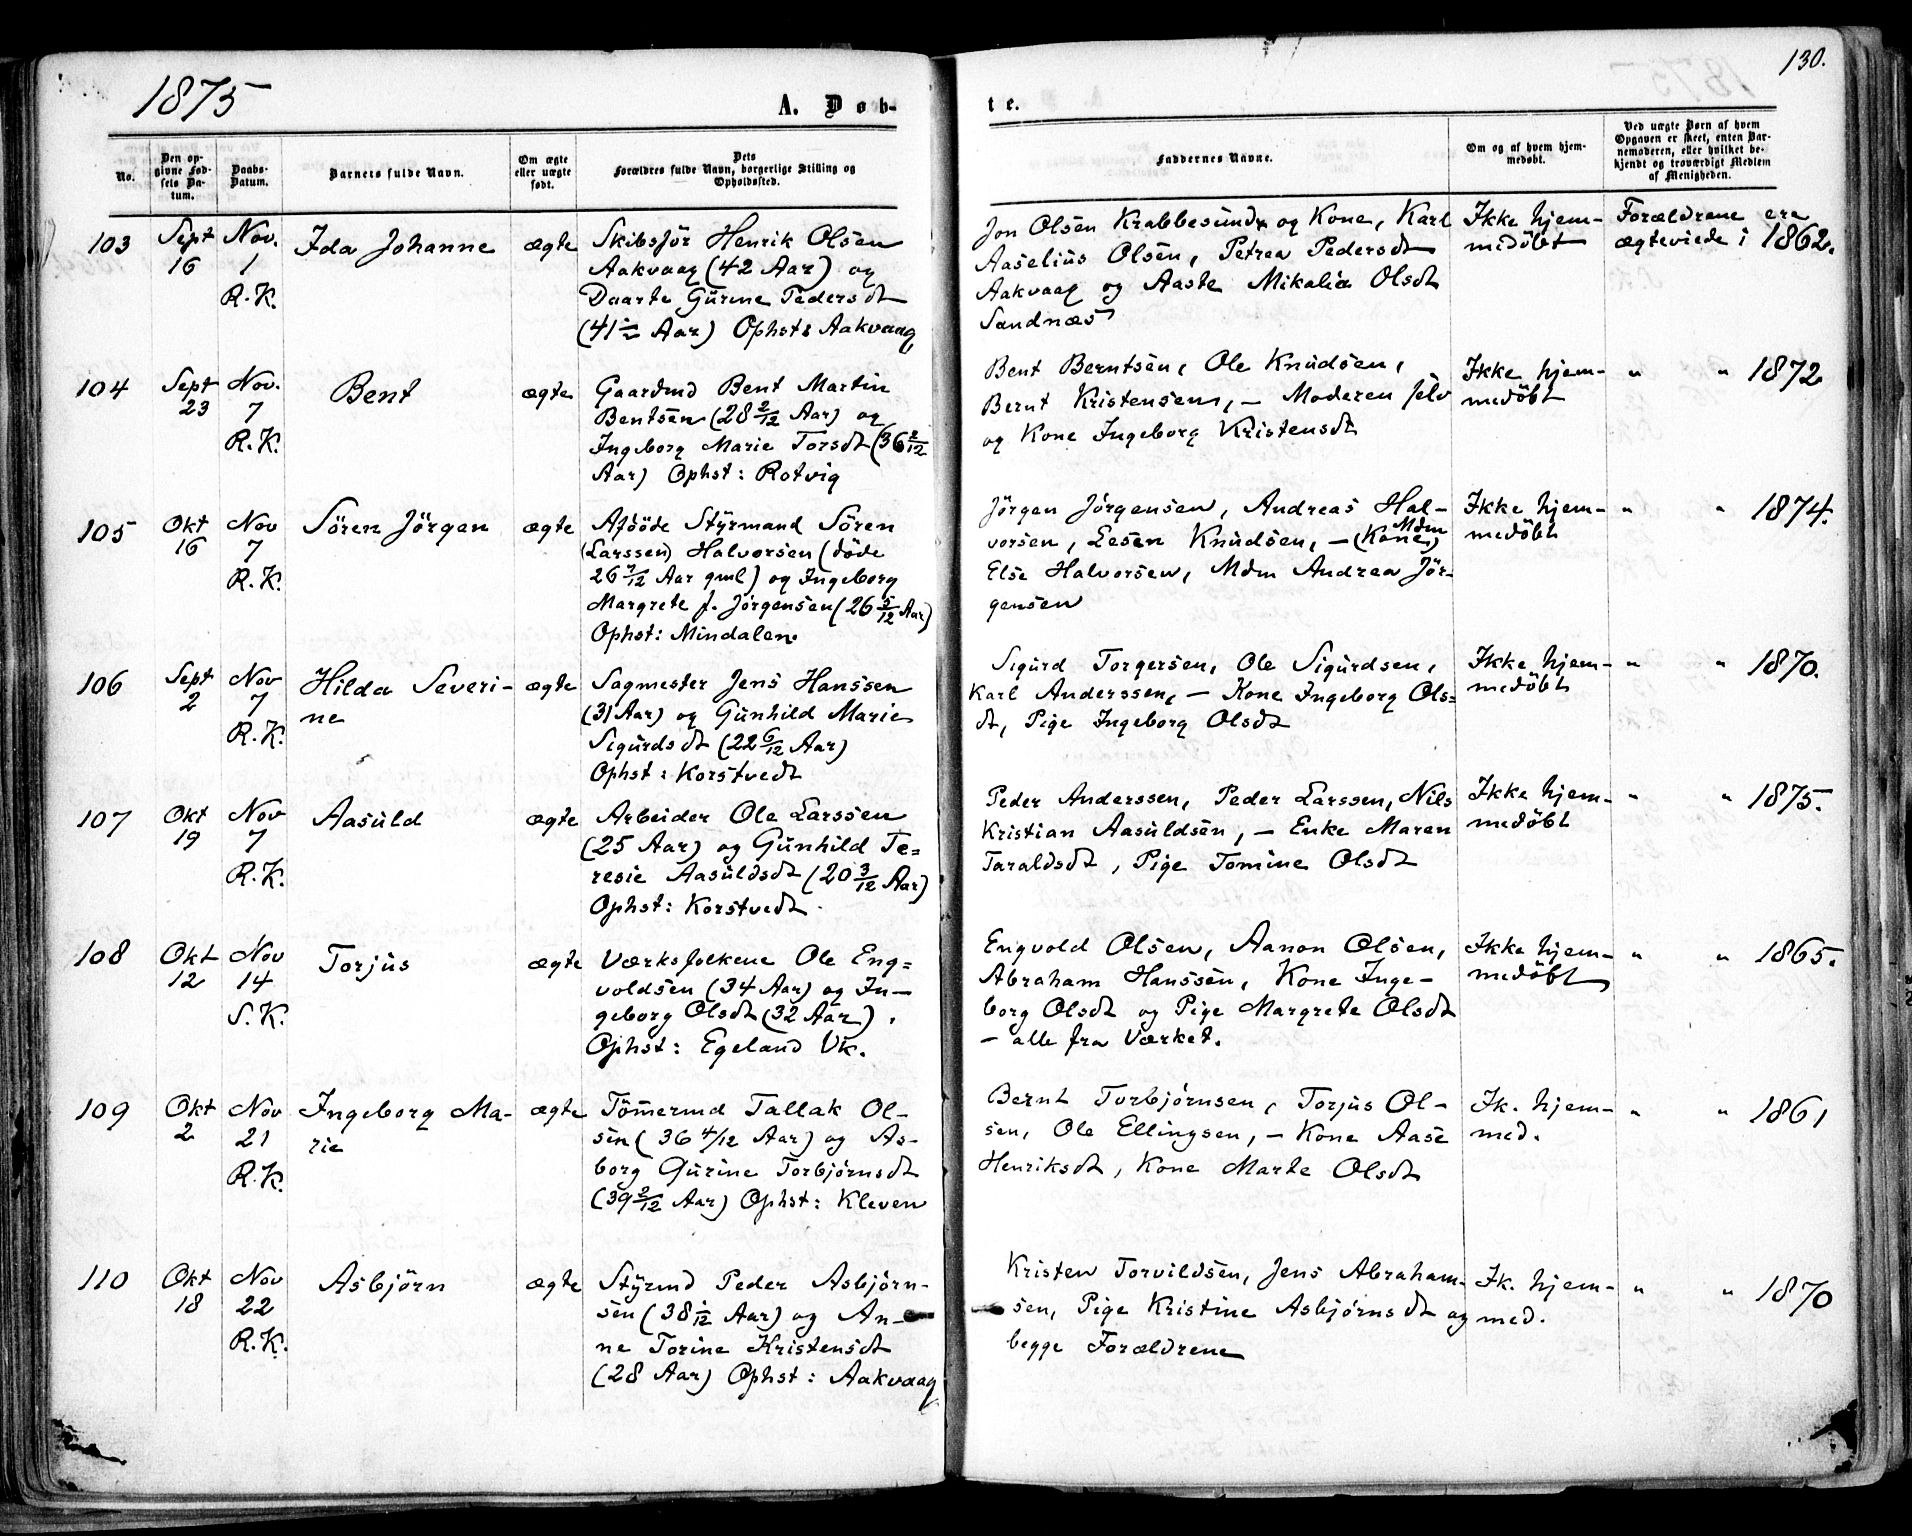 1875
A. Døb-
te.
130.
No.
Den op-
givne Fød-
sels Da-
tum.
Daabs-
Datum.
Barnets fulde Navn.
Om ægte
eller uægte
født.
Dets
Forældres fulde Navn, borgerlige Stilling og
Opholdssted.
Faddernes Navne.
Om og af hvem hjem-
medøbt.
Ved uægte Børn af hvem
Opgaven er skeet, enten Bar-
nemoderen, eller hvilket be-
kjendt og troværdigt Medlem
af Menigheden.
103
Sept
16
Nov.
1
R.K.
Ida Johanne
ægte
Skibsför Henrik Olsen
Aakvaag (42 Aar) og
Daarte Gürine Pedersdt
(41 Aar) Ophst: Aakvaag
Jon Olsen Krabbesund og Kone, Karl
Aaselius Olsen, Petrea Pedersdt
Aakvaag og Aaste Mikalia Olsdt
Sandnæs
Ikke hjem-
medöbt
Forældrene ere
ægteviede i 1862.
104
Sept
23
Nov.
7
R.K.
Bent
ægte
Gaardmd Bent Martin
Bentsen (28 2/12 Aar) og
Ingeborg Marie Torsdt (36 2/12
Aar) Ophst: Rotvig
Bent Berntsen, Ole Knüdsen,
Bernt Kristensen, - Moderen selv
og Kone Ingeborg Kristensdt
Ikke hjem-
medöbt
" " 1872
105
Okt
16
Nov
7
R.K.
Sören Jörgen
ægte
Afdöde Styrmand Sören
(Larssen) Halvorsen (döde
26 7/12 Aar gml) og Ingeborg
Margrete f. Jörgensen (26 5/12 Aar)
Ophst: Mindalen
Jörgen Jörgensen, Andreas Hal-
vorsen, Lesen Knüdsen, - (Kone) Mdm
Else Halvorsen, Mdm Andrea Jör-
gensen
Ikke hjem-
medöbt
" " 1874.
106
Sept
2
Nov
7
R.K.
Hilda Severi-
ne
ægte
Sagmester Jens Hanssen
(31 Aar) og Günhild Marie
Sigürdsdt (22 6/12 Aar)
Ophst: Korstvedt
Sigürd Torgersen, Ole Sigürdsen,
Karl Anderssen, - Kone Ingeborg Ols=
dt, Pige Ingeborg Olsdt
Ikke hjem-
medöbt
" " 1870.
107
Okt
19
Nov
7
R.K.
Aasüld
ægte
Arbeider Ole Larssen
(25 Aar) og Günhild Te=
resie Aasüldsdt (20 3/12 Aar)
Ophst: Korstvedt
Peder Anderssen, Peder Larssen, Nils
Kristian Aasüldsen, - Enke Maren
Taraldsdt, Pige Tomine Olsdt
Ikke hjem-
medöbt
" " 1875.
108
Okt
12
Nov
14
S.K.
Torjüs
ægte
Værksfolkene Ole Eng=
voldsen (34 Aar) og In-
geborg Olsdt (32 Aar).
Ophst: Egeland Vk.
Engvold Olsen, Aanon Olsen,
Abraham Hanssen, Kone Inge-
borg Olsdt og Pige Margrete Olsdt
- alle fra Værket.
Ikke hjem-
medöbt
" " 1865.
109
Okt
2
Nov
21
R.K.
Ingeborg Ma-
rie
ægte
Tömermd Tallak Ol-
sen (36 4/12 Aar) og As-
borg Gürine Torbjörnsdt
(39 2/12 Aar) Ophst: Kleven
Bernt Torbjörnsen, Torjüs Ol-
sen, Ole Ellingsen, - Kone Aase
Henriksdt, Kone Marte Olsdt
Ik. hjem-
med.
" " 1861
110
Okt
18
Nov
22
R.K.
Asbjörn
ægte
Styrmd Peder Asbjörn-
sen (38 1/12 Aar) og An-
ne Torine Kristensdt
(28 Aar) Ophst: Aakvaag
Kristen Torvildsen, Jens Abraham-
sen, Pige Kristine Asbjörnsdt og
begge Forældrene
Ik. hjem-
med.
" " 1870